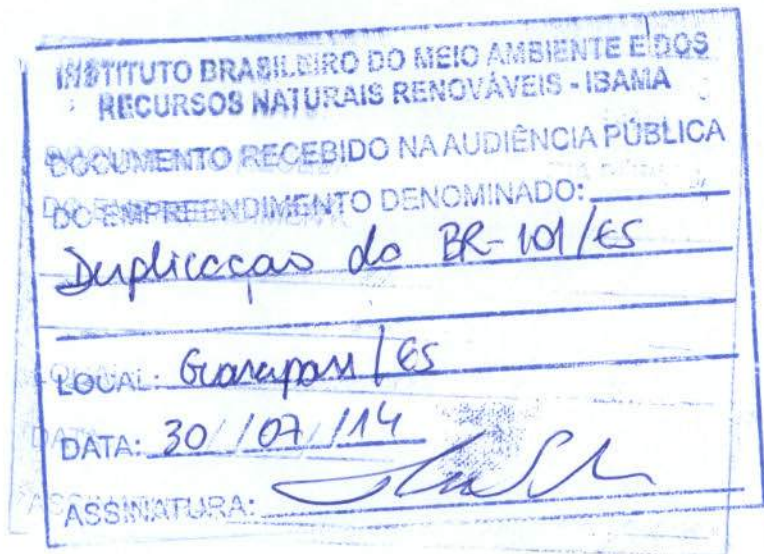 INSTITUTO BRASILEIRO DO MEIO AMBIENTE E DOS
RECURSOS NATURAIS RENOVÁVEIS - IBAMA
DOCUMENTO RECEBIDO NA AUDIÊNCIA PÚBLICA
DO EMPREENDIMENTO DENOMINADO:
Duplicação da BR-101/ES
LOCAL: Guarapari/ES
DATA: 30/07/14
ASSINATURA: